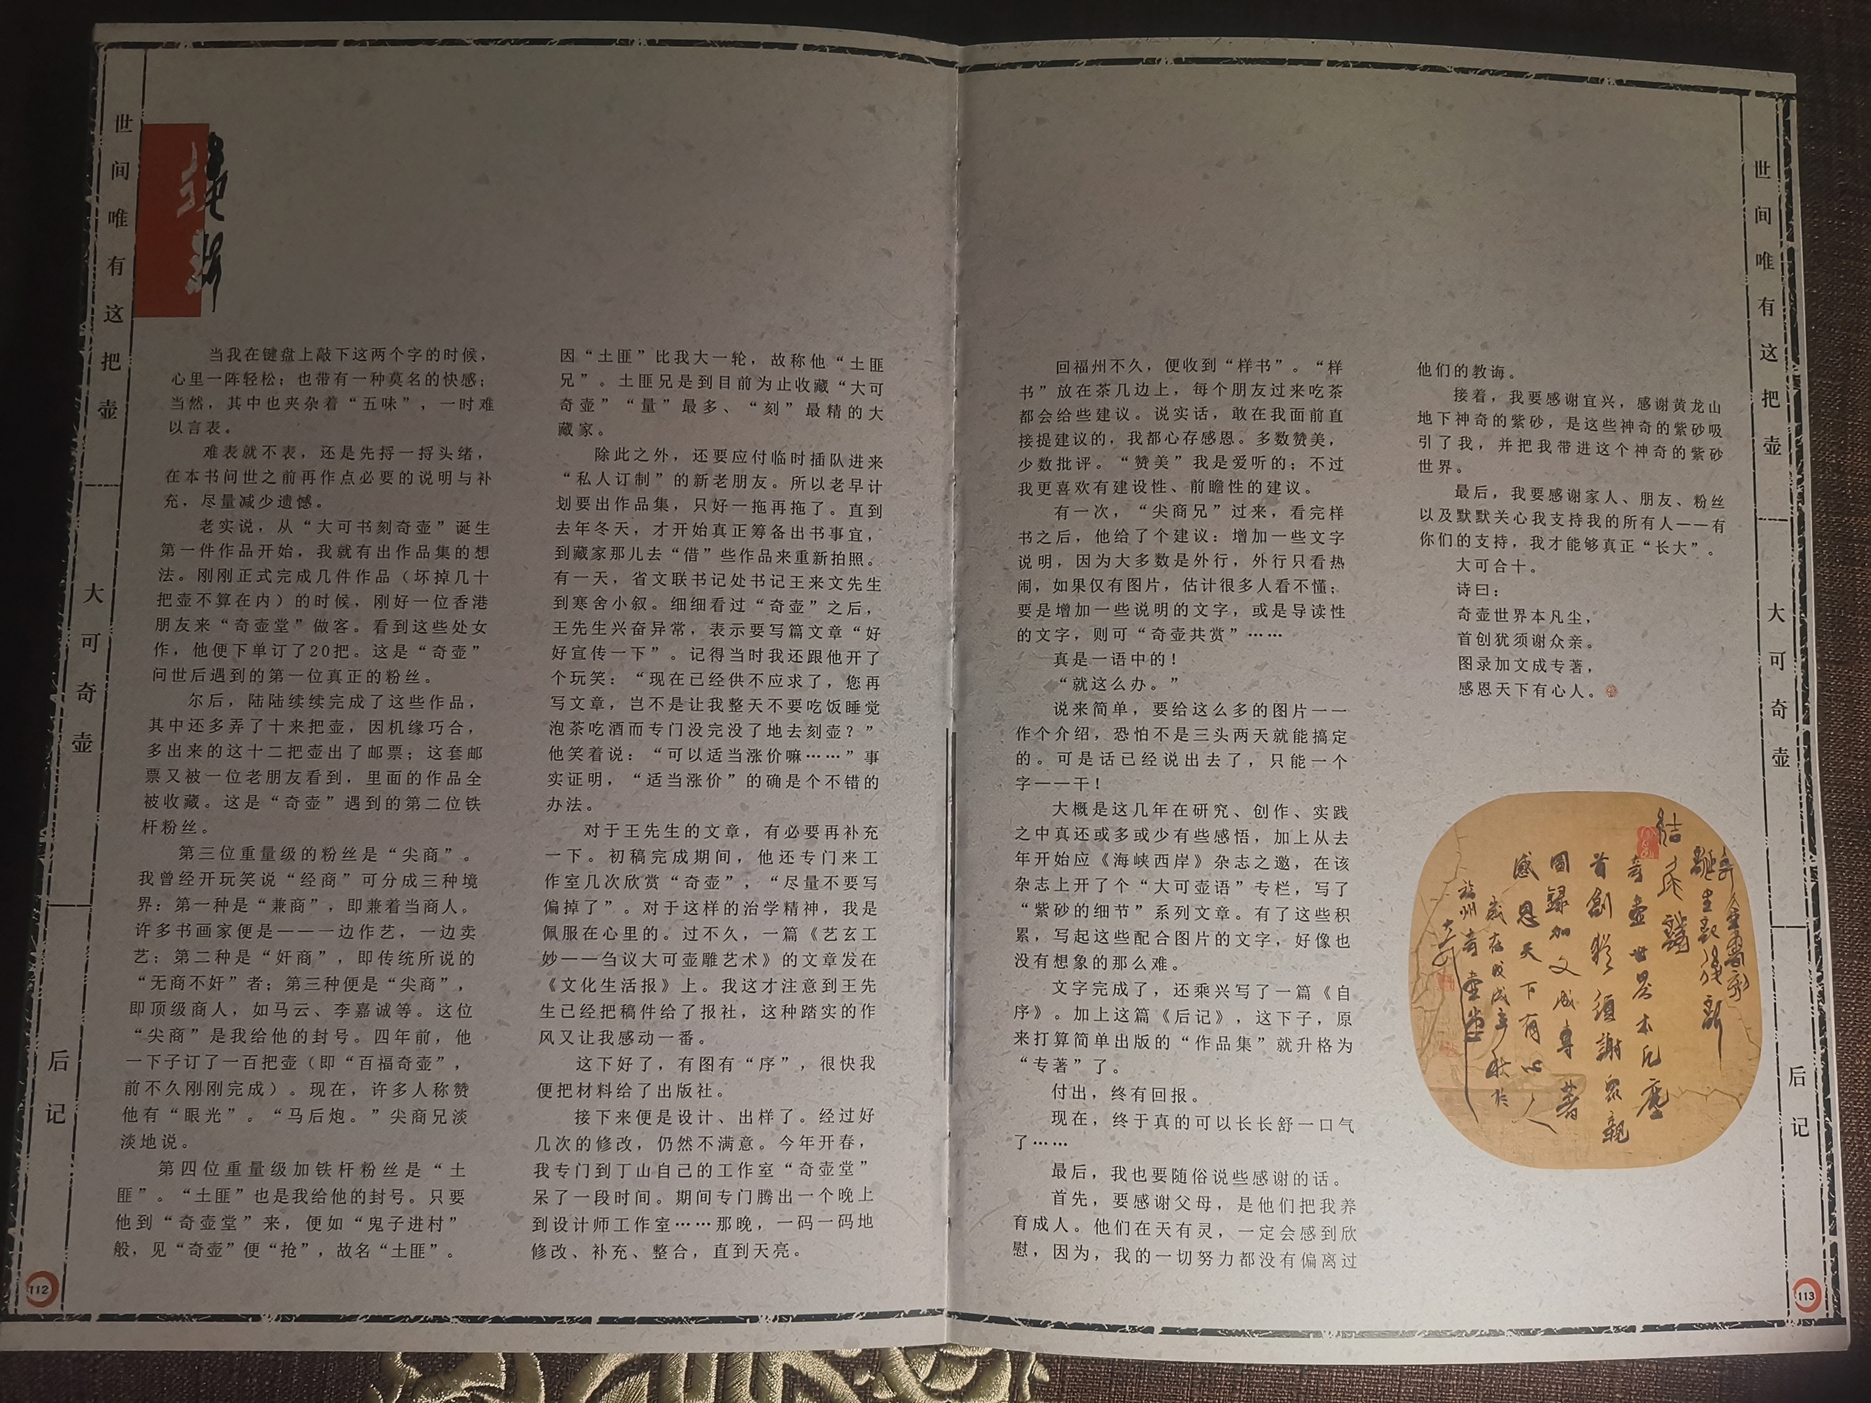 世间唯有这把壶
大可奇壶
后记
当我在键盘上敲下这两个字的时候，
心里一阵轻松；也带有一种莫名的快感；
当然，其中也夹杂着“五味”，一时难
以言表。
难表就不表，还是先捋一捋头绪，
在本书问世之前再作点必要的说明与补
充，尽量减少遗憾。
老实说，从“大可书刻奇壶”诞生
第一件作品开始，我就有出作品集的想
法。刚刚正式完成几件作品（坏掉几十
把壶不算在内）的时候，刚好一位香港
朋友来“奇壶堂”做客。看到这些处女
作，他便下单订了20把。这是“奇壶”
问世后遇到的第一位真正的粉丝。
尔后，陆陆续续完成了这些作品，
其中还多弄了十来把壶，因机缘巧合，
多出来的这十二把壶出了邮票；这套邮
票又被一位老朋友看到，里面的作品全
被收藏。这是“奇壶”遇到的第二位铁
杆粉丝。
第三位重量级的粉丝是“尖商”。
我曾经开玩笑说“经商”可分成三种境
界：第一种是“兼商”，即兼着当商人。
许多书画家便是——一边作艺，一边卖
艺；第二种是“奸商”，即传统所说的
“无商不奸”者；第三种便是“尖商”，
即顶级商人，如马云、李嘉诚等。这位
“尖商”是我给他的封号。四年前，他
一下子订了一百把壶（即“百福奇壶”，
前不久刚刚完成）。现在，许多人称赞
他有“眼光”。“马后炮。”尖商兄淡
淡地说。
第四位重量级加铁杆粉丝是“土
匪”。“土匪”也是我给他的封号。只要
他到“奇壶堂”来，便如“鬼子进村”
般，见“奇壶”便“抢”，故名“土匪”。
112
因“土匪”比我大一轮，故称他“土匪
兄”。土匪兄是到目前为止收藏“大可
奇壶”“量”最多、“刻”最精的大
藏家。
除此之外，还要应付临时插队进来
“私人订制”的新老朋友。所以老早计
划要出作品集，只好一拖再拖了。直到
去年冬天，才开始真正筹备出书事宜，
到藏家那儿去“借”些作品来重新拍照。
有一天，省文联书记处书记王来文先生
到寒舍小叙。细细看过“奇壶”之后，
王先生兴奋异常，表示要写篇文章“好
好宣传一下”。记得当时我还跟他开了
个玩笑：“现在已经供不应求了，您再
写文章，岂不是让我整天不要吃饭睡觉
泡茶吃酒而专门没完没了地去刻壶？”
他笑着说：“可以适当涨价嘛……”事
实证明，“适当涨价”的确是个不错的
办法。
对于王先生的文章，有必要再补充
一下。初稿完成期间，他还专门来工
作室几次欣赏“奇壶”，“尽量不要写
偏掉了”。对于这样的治学精神，我是
佩服在心里的。过不久，一篇《艺玄工
妙——刍议大可壶雕艺术》的文章发在
《文化生活报》上。我这才注意到王先
生已经把稿件给了报社，这种踏实的作
风又让我感动一番。
这下好了，有图有“序”，很快我
便把材料给了出版社。
接下来便是设计、出样了。经过好
几次的修改，仍然不满意。今年开春，
我专门到丁山自己的工作室“奇壶堂”
呆了一段时间。期间专门腾出一个晚上
到设计师工作室……那晚，一码一码地
修改、补充、整合，直到天亮。
回福州不久，便收到“样书”。“样
书”放在茶几边上，每个朋友过来吃茶
都会给些建议。说实话，敢在我面前直
接提建议的，我都心存感恩。多数赞美，
少数批评。“赞美”我是爱听的；不过
我更喜欢有建设性、前瞻性的建议。
有一次，“尖商兄”过来，看完样
书之后，他给了个建议：增加一些文字
说明，因为大多数是外行，外行只看热
闹，如果仅有图片，估计很多人看不懂；
要是增加一些说明的文字，或是导读性
的文字，则可“奇壶共赏”……
真是一语中的！
“就这么办。”
说来简单，要给这么多的图片一一
作个介绍，恐怕不是三头两天就能搞定
的。可是话已经说出去了，只能一个
字——干！
大概是这几年在研究、创作、实践
之中真还或多或少有些感悟，加上从去
年开始应《海峡西岸》杂志之邀，在该
杂志上开了个“大可壶语”专栏，写了
“紫砂的细节”系列文章。有了这些积
累，写起这些配合图片的文字，好像也
没有想象的那么难。
文字完成了，还乘兴写了一篇《自
序》。加上这篇《后记》，这下子，原
来打算简单出版的“作品集”就升格为
“专著”了。
付出，终有回报。
现在，终于真的可以长长舒一口气
了……
最后，我也要随俗说些感谢的话。
首先，要感谢父母，是他们把我养
育成人。他们在天有灵，一定会感到欣
慰，因为，我的一切努力都没有偏离过
他们的教诲。
接着，我要感谢宜兴，感谢黄龙山
地下神奇的紫砂，是这些神奇的紫砂吸
引了我，并把我带进这个神奇的紫砂
世界。
最后，我要感谢家人、朋友、粉丝
以及默默关心我支持我的所有人——有
你们的支持，我才能够真正“长大”。
大可合十。
诗曰：
奇壶世界本凡尘，
首创犹须谢众亲。
图录加文成专著，
感恩天下有心人。
奇壺世界本凡塵
首創猶須謝衆親
圖録加文成專著
感恩天下有心人
世间唯有这把壶
大可奇壶
后记
113